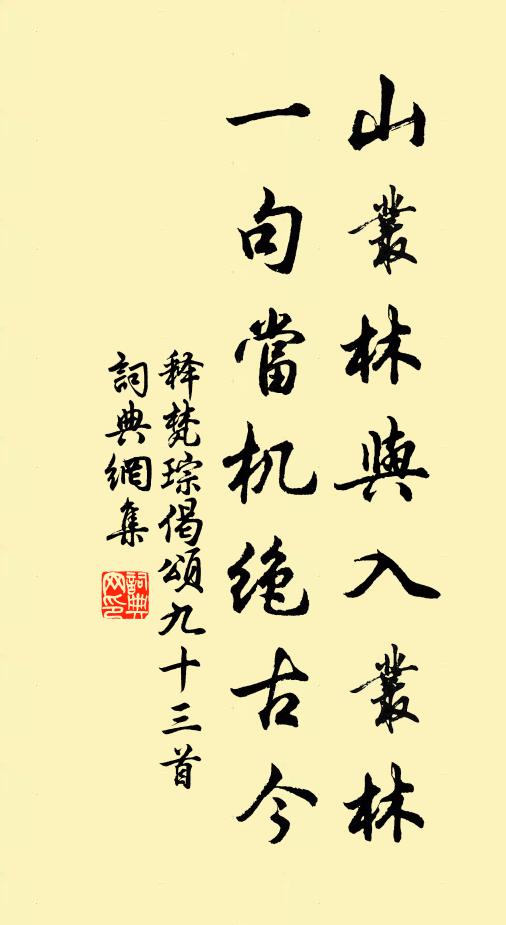 山叢林與入叢林
一句當机绝古今
释梵琮偈頌九十三首
詞典網集
詞典网印